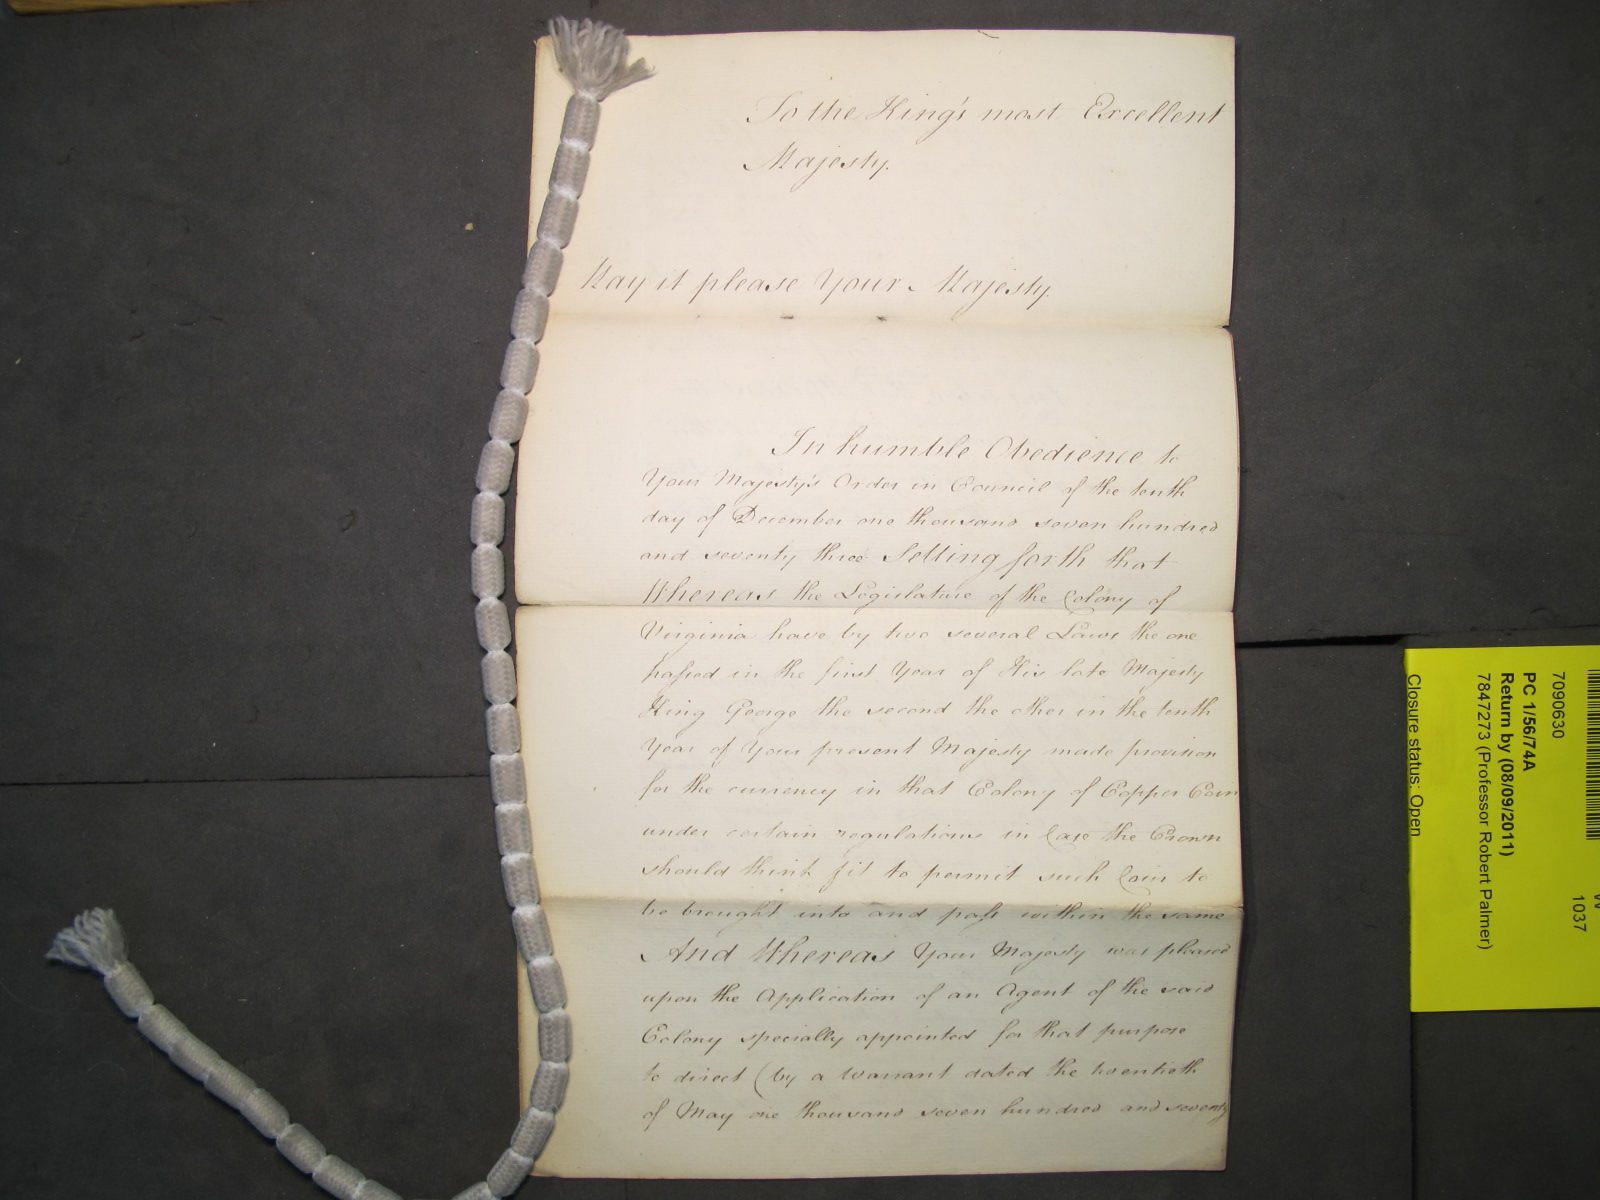 To the King's most Excellent
Majesty.
May it please Your Majesty.
In humble Obedience to
Your Majesty's Order in Council of the tenth
day of December one thousand seven hundred
and seventy three Setting forth that
Whereas the Legislature of the Colony of
Virginia have by two several Laws the one
passed in the first Year of His late Majesty
King George the second the other in the tenth
Year of Your present Majesty made provision
for the currency in that Colony of Copper Coin
under certain regulations in Case the Crown
should think fit to permit such Coin to
be brought into and pass within the same
And Whereas Your Majesty was pleased
upon the Application of an Agent of the said
Colony specially appointed for that purpose
to direct (by a Warrant dated the twentieth
of May one thousand seven hundred and seventy
7090630
1037
PC 1/56/74A
Return by (08/09/2011)
7847273 (Professor Robert Palmer)
Closure status: Open